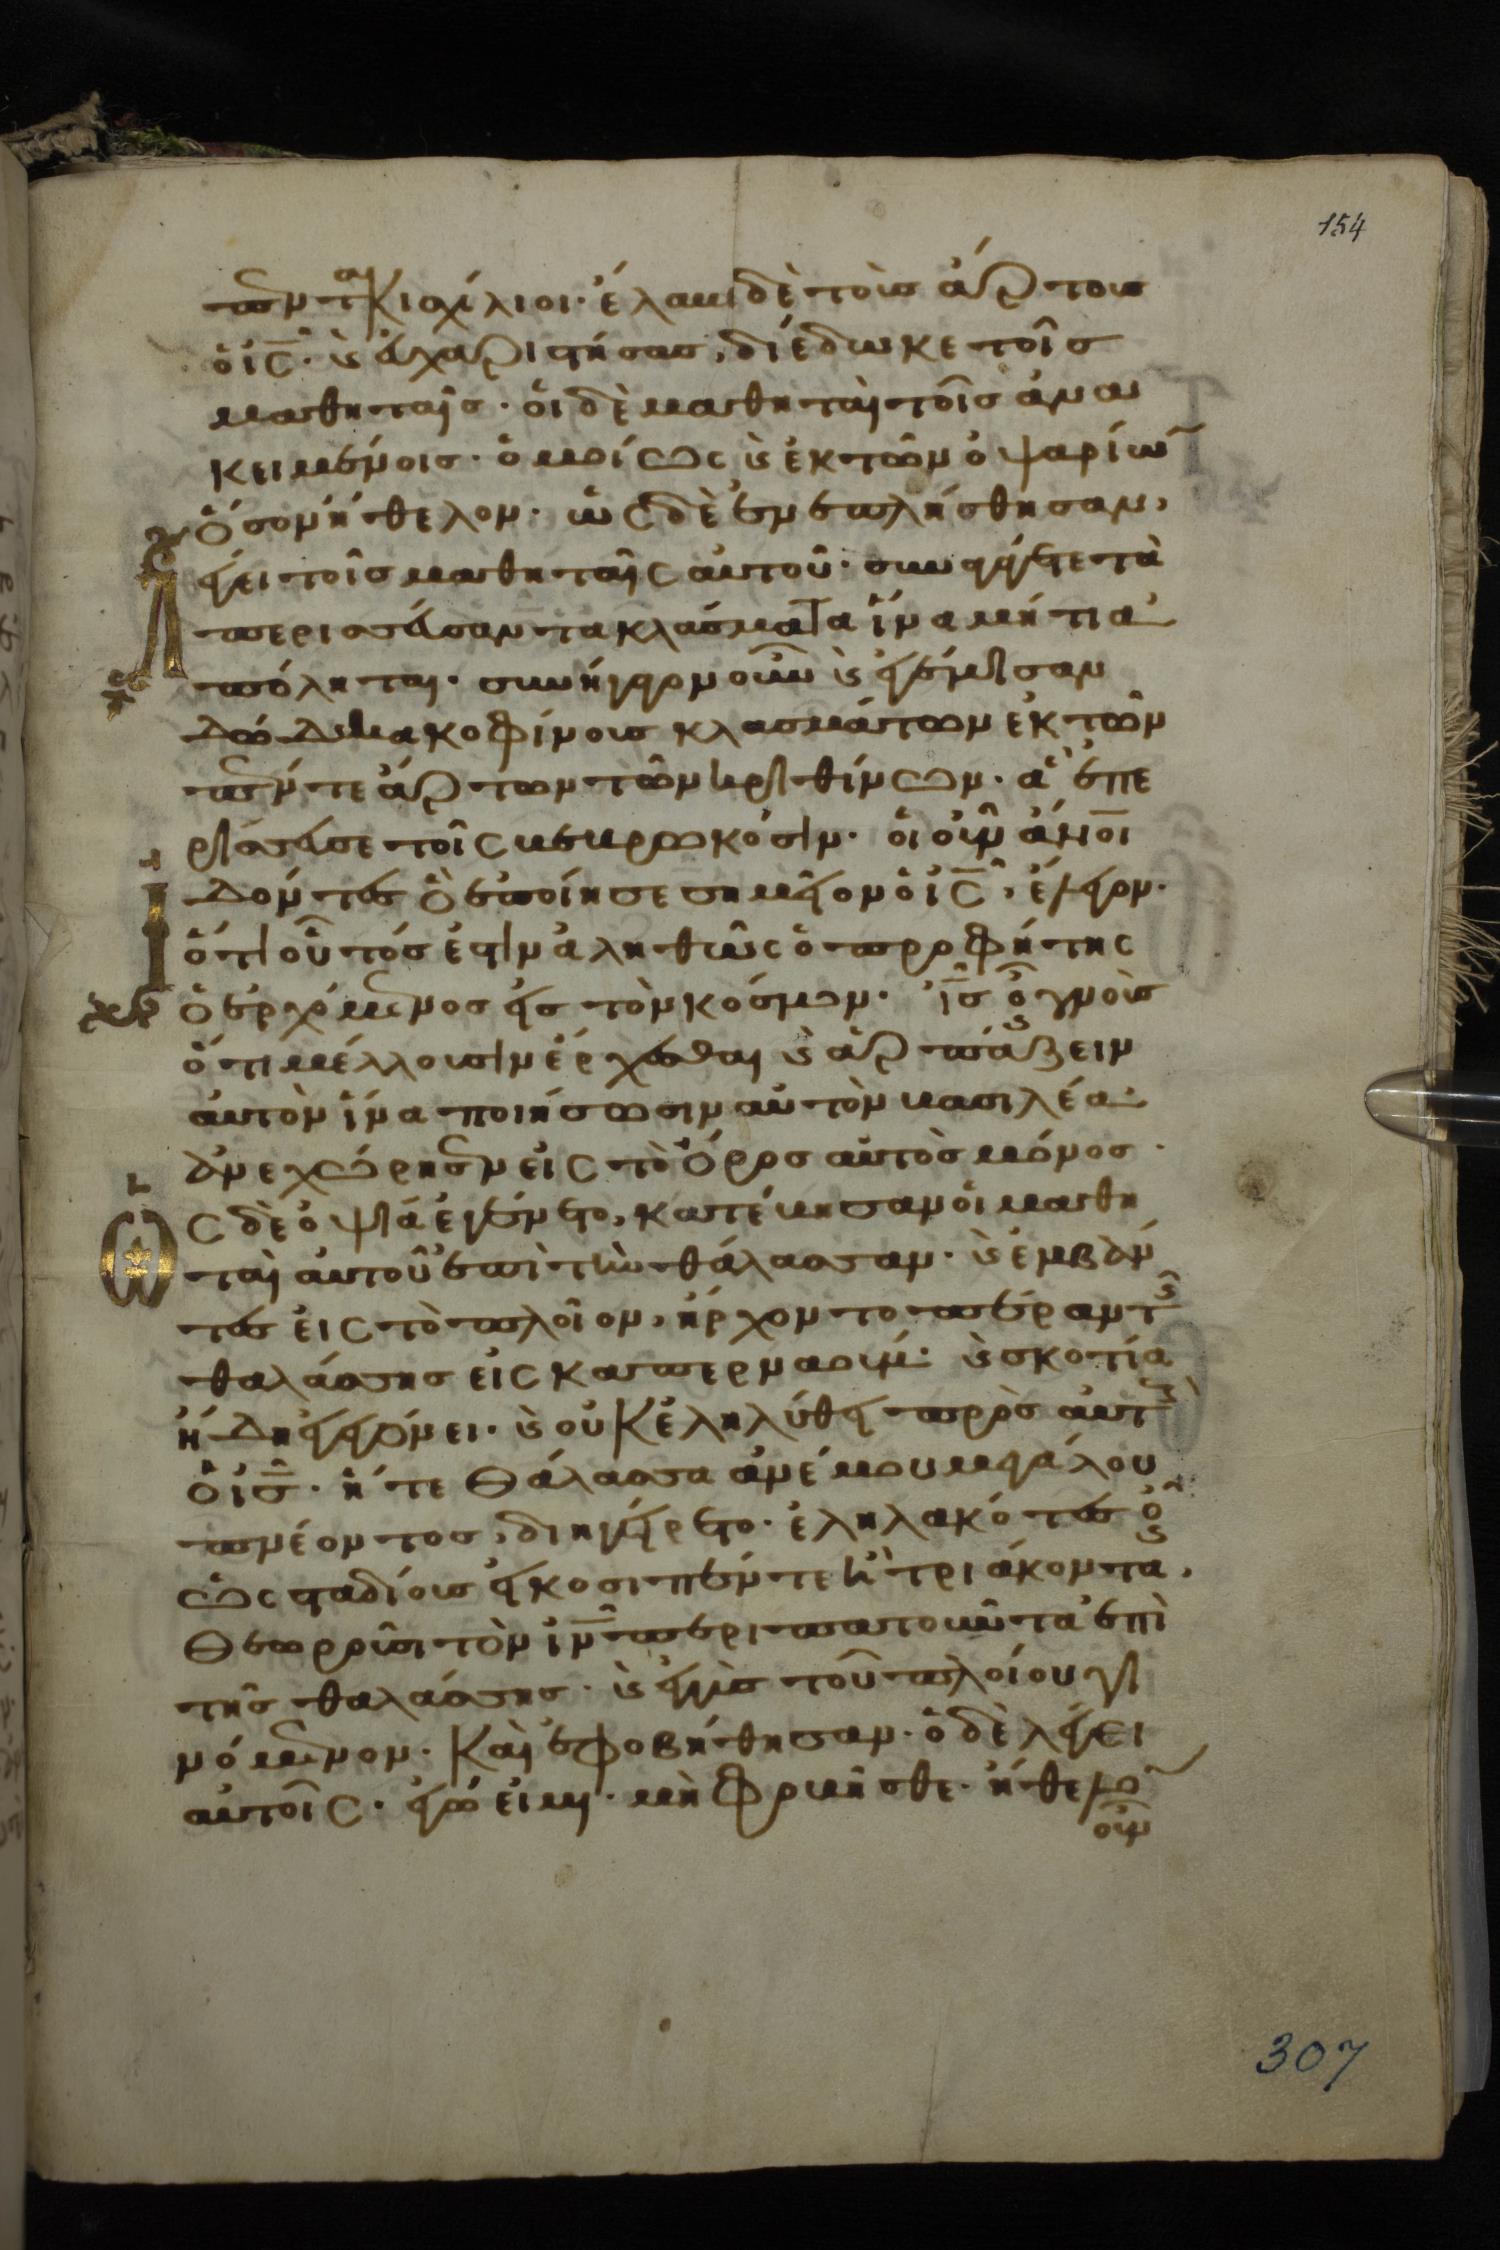 154
πεντακισχίλιοι· ἔλαβε δὲ τοὺς ἄρτους
ὁ ις̅· κ̀ εὐχαριστήσας, διέδωκε τοῖς
μαθηταῖς· οἱ δὲ μαθηταὶ τοῖς ἀνα
κειμένοις· ὁμοίως κ̀ ἐκ τῶν ὀψαρίω̅
ὅσον ἤθελον· ὡς δὲ ἐνεπλήσθησαν,
λέγει τοῖς μαθηταῖς αὐτοῦ· συναγάγετε τὰ
περισσεύσαντα κλάσματα ἵνα μή τι ἀ
πόληται· συνήγαγον οὖν κ̀ ἐγέμισαν
δώδεκα κοφίνους κλασμάτων ἐκ τῶν
πέντε ἄρτων τῶν κριθίνων· ἃ ἐπε
ρίσσευσε τοῖς βεβρωκόσιν· οἱ οὖν ἄνοι̅
ἰδόντες ὃ ἐποίησε σημεῖον ὁ ις̅, ἔλεγον·
ὅτι οὗτός ἐστιν ἀληθῶς ὁ προφήτης
ὁ ἐρχόμενος εἰς τὸν κόσμον· ις̅ οὖν γνοὺς
ὅτι μέλλουσιν ἔρχεσθαι κ̀ ἁρπάζειν
αὐτὸν ἵνα ποιήσωσιν αὐτὸν βασιλέα·
ἀνεχώρησεν εἰς τὸ ὄρος αὐτὸς μόνος·
Ὡς δὲ ὀψία ἐγένετο, κατέβησαν οἱ μαθη
ταὶ αὐτοῦ ἐπὶ τὴν θάλασσαν· κ̀ ἐμβάν
τες εἰς τὸ πλοῖον, ἤρχοντο πέραν τῆς
θαλάσσης εἰς καπερναούμ· κ̀ σκοτία
ἤδη ἐγεγόνει· κ̀ οὐκ ἐληλύθει πρὸς αὐτοὺς
ὁ ις̅· ἥ τε θάλασσα ἀνέμου μεγάλου
πνέοντος, διηγείρετο· ἐληλακότες οὖν
ὡς σταδίους εἴκοσι πέντε ἢ τριάκοντα,
θεωροῦσι τὸν ιν̅ περιπατοῦντα ἐπὶ
τῆς θαλάσσης· κ̀ ἐγγὺς τοῦ πλοίου γι
νόμενον· καὶ ἐφοβήθησαν· ὁ δὲ λέγει
αὐτοῖς· ἐγώ εἰμι· μὴ φοβεῖσθε· ἤθελο̅
οὖν
307